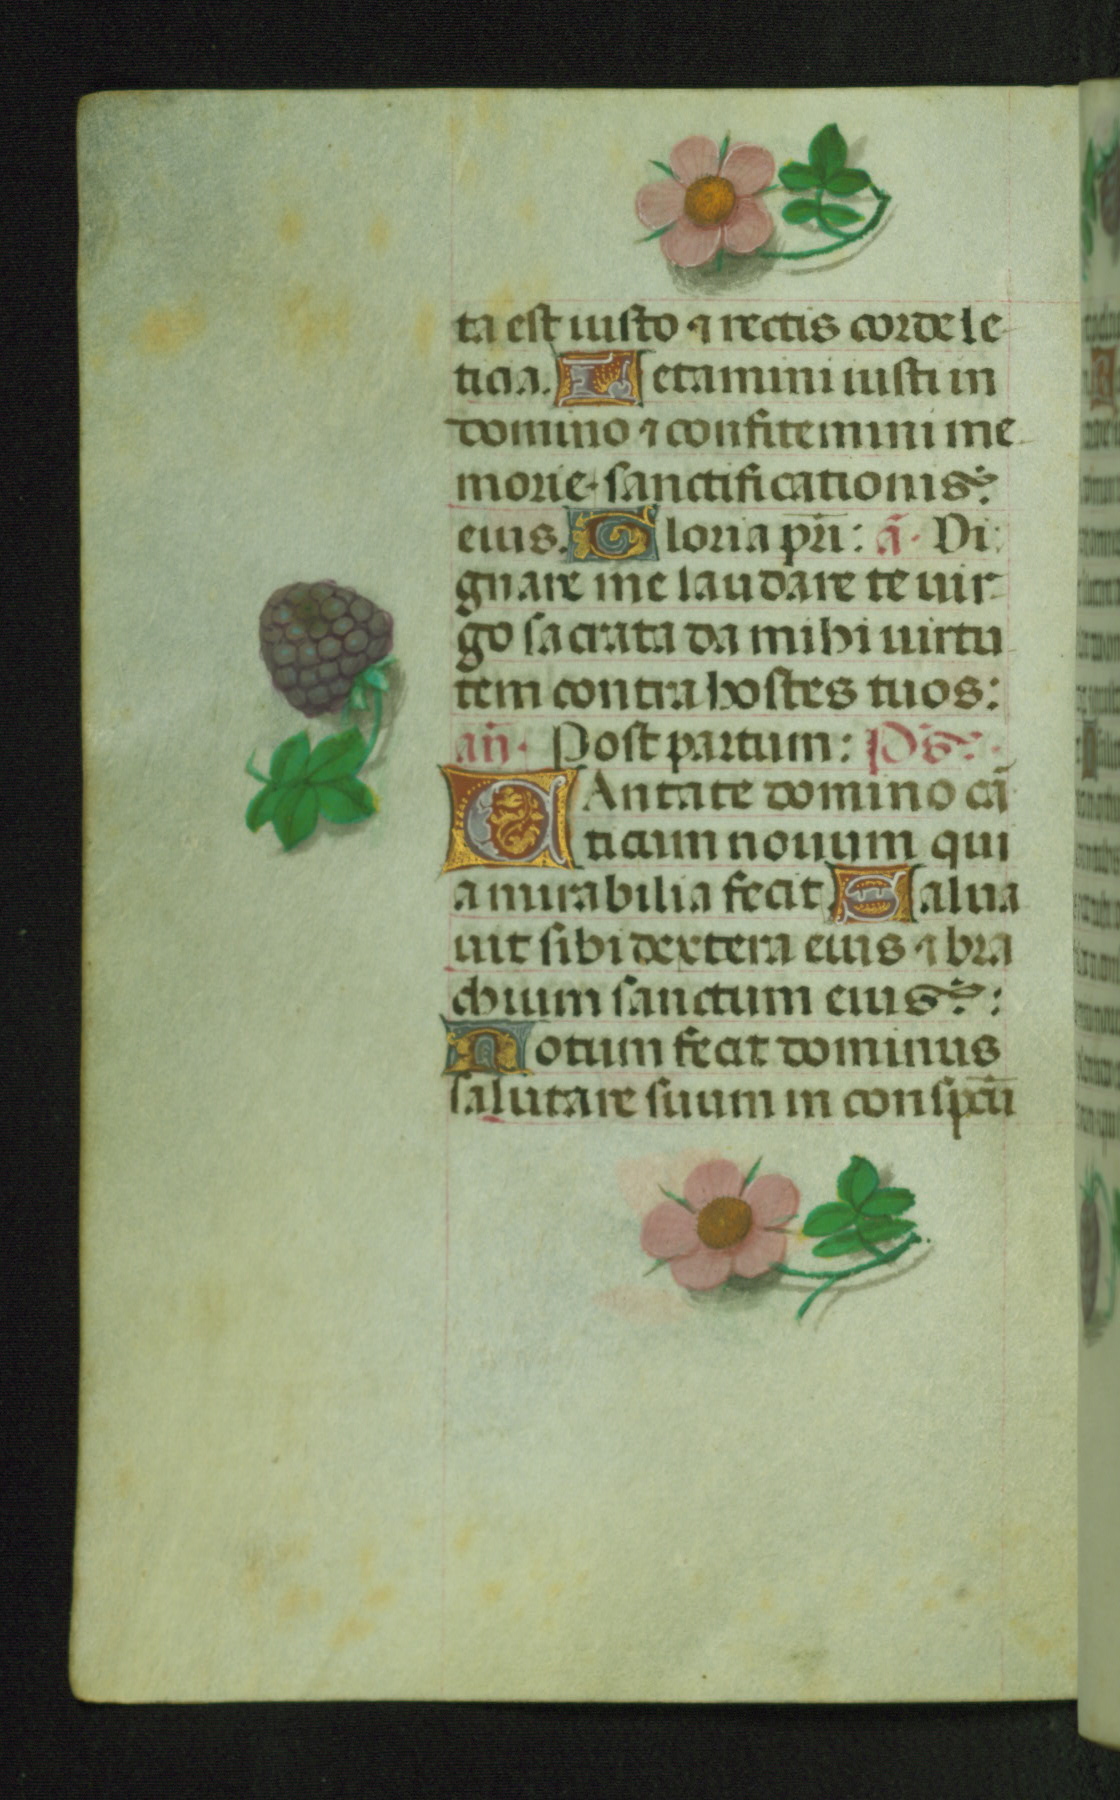 ta est iusto ⁊ rectis corde le
ticia. Letamini iusti in
domino ⁊ confitemini me
morie sanctificationis
eius. Gloria pr̄i: ā. Di
gnare me laudare te uir
go sacrata da mihi uirtu
tem contra hostes tuos:
an̄. Post partum: Ps̄.
CAntate domino cā
ticum nouum qui
a mirabilia fecit Salua
uit sibi dextera eius ⁊ bra
chium sanctum eius:
Notum fecit dominus
salutare suum in conspc̄u